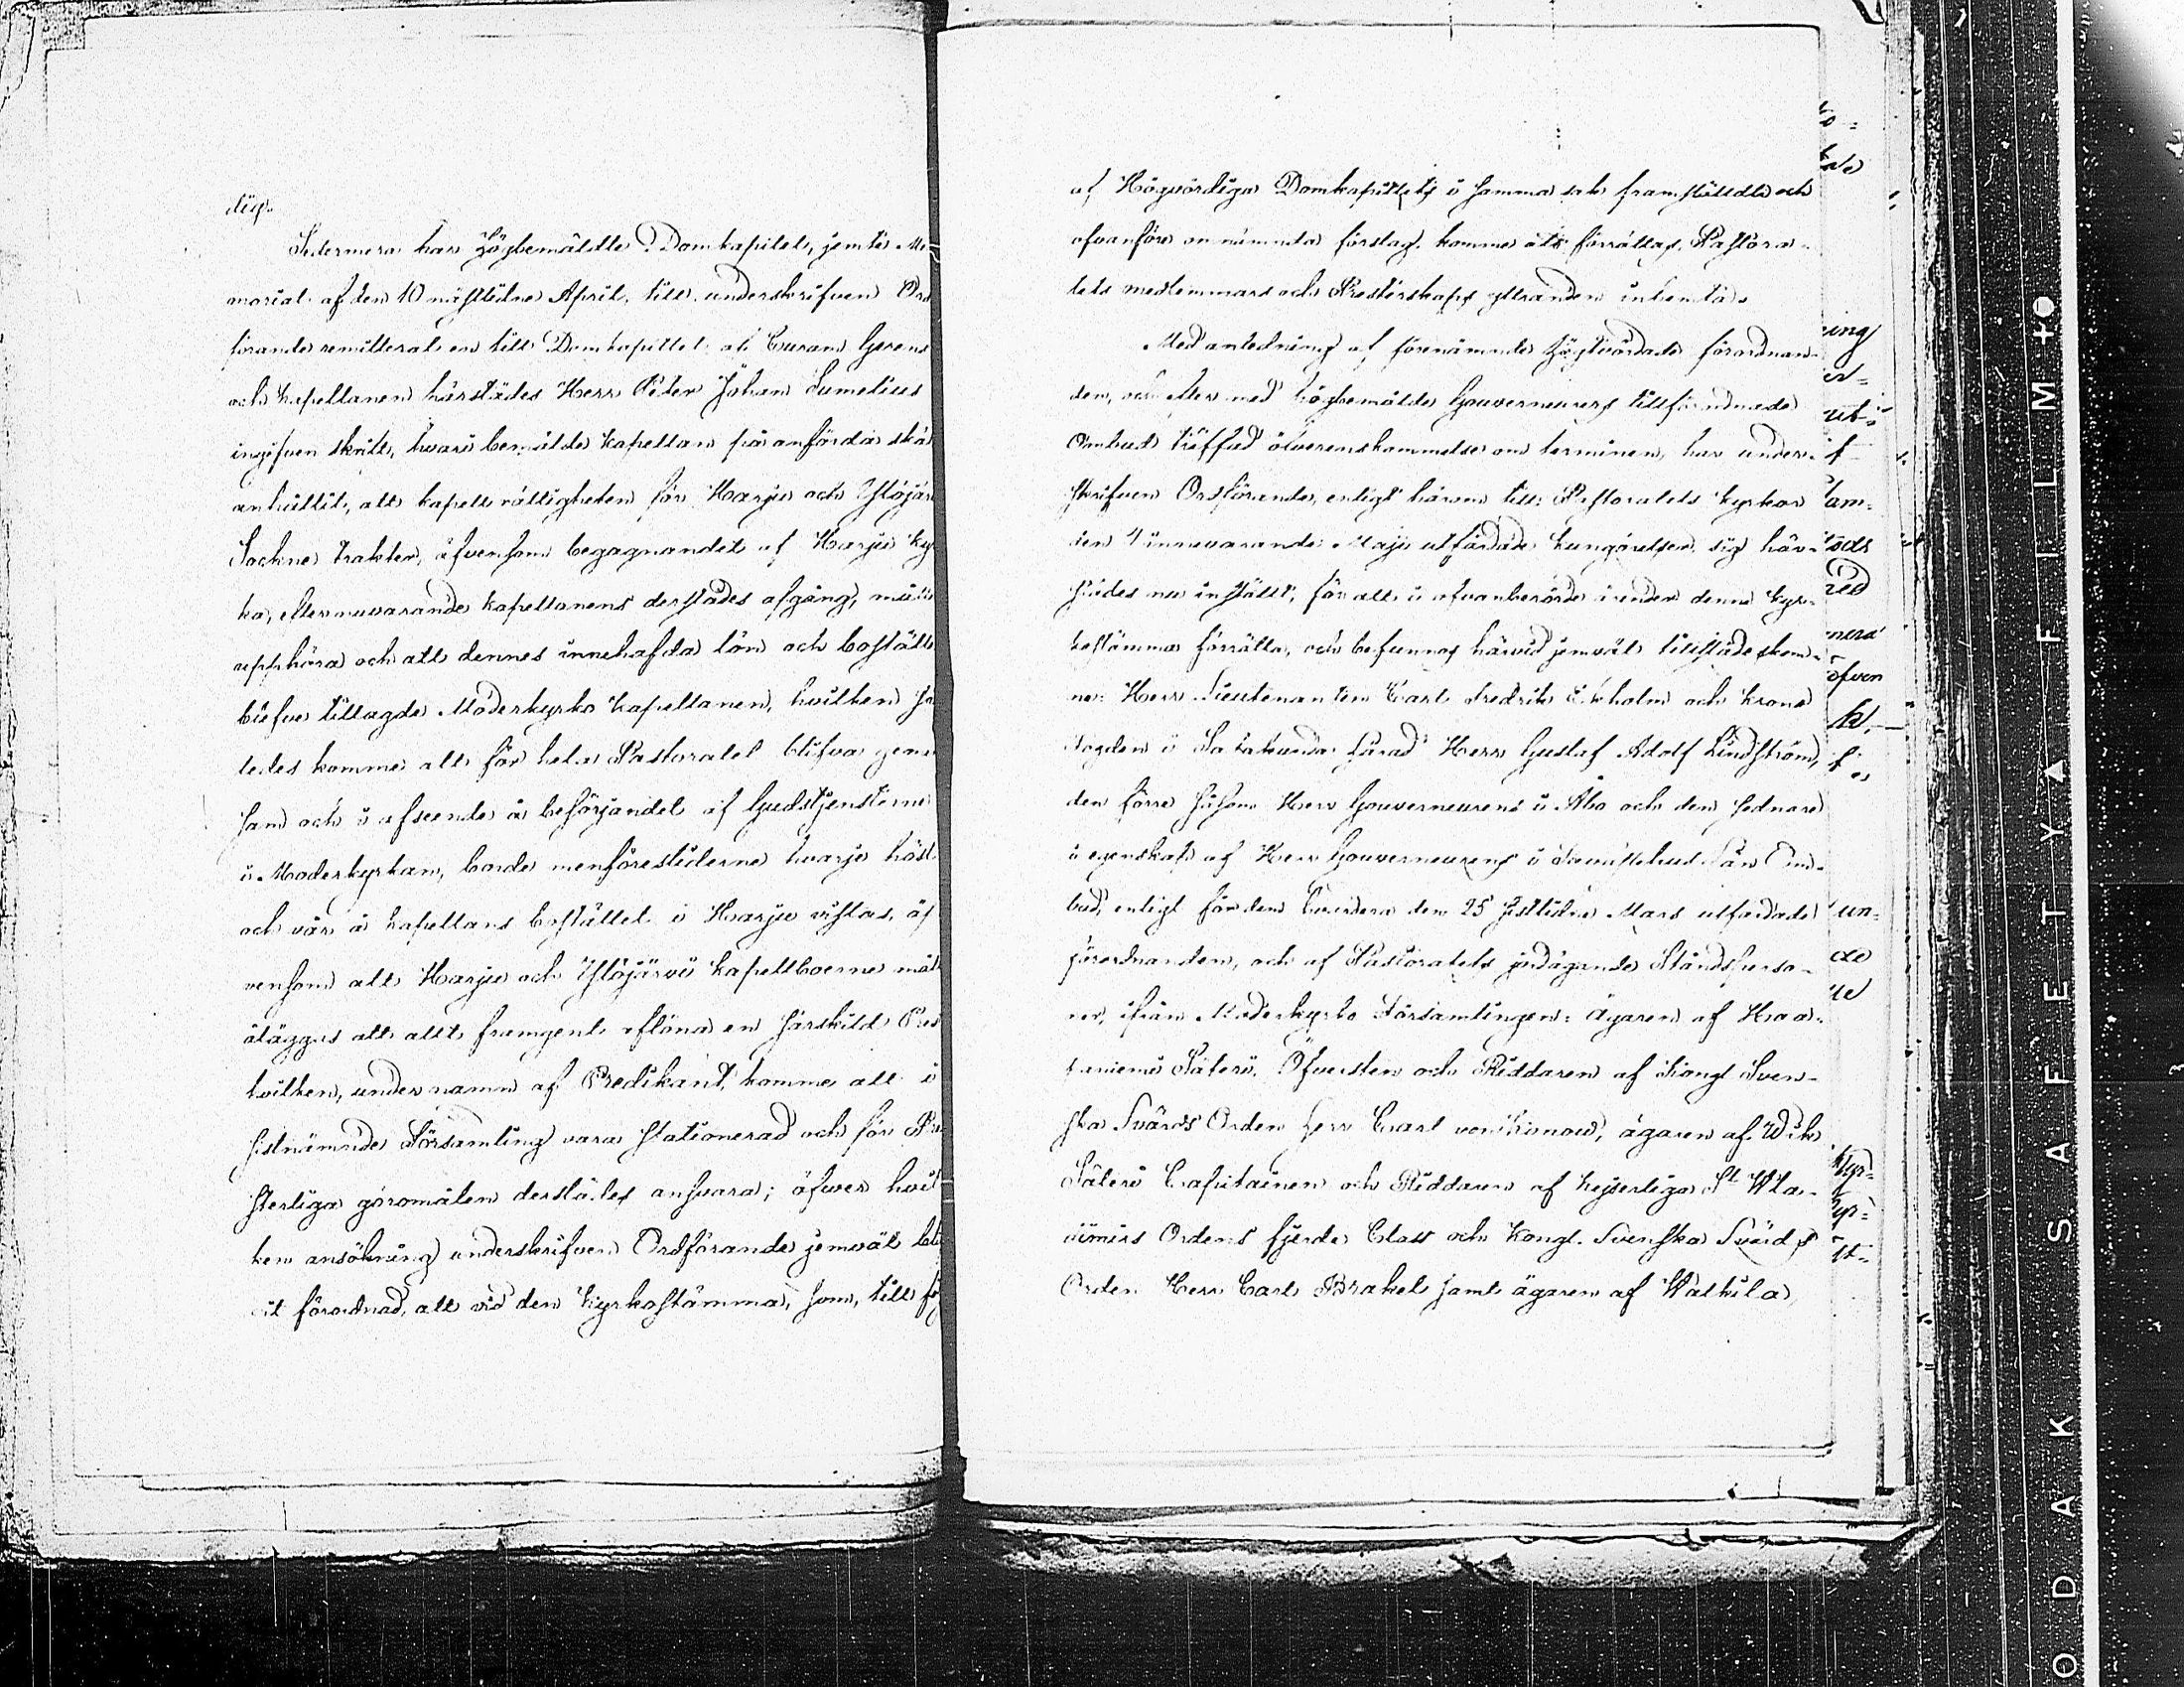 Sedermera har Högbemäldte Domkapitel, jemte Me-
morial af den 10 nästledne April, till underskrifven Ord
förande remitterat en till Domkapitlet af Curam Gerens
och kapellanen härstädes Herr Peter Johan Sumelius
ingifven skrift, hvari bemälde kapellan på anförda skä
anhållit, att kapell rättigheten för Harju och Ylöjär
Sockne trakter, äfvensom begagnandet af Harju kyr
ka, efter nuvarande kapellanens derstädes afgång, måtte
upphöra och att dennes innehafda lön och boställe
blifva tillagde Moderkyrko kapellanen, hvilken så
ledes komme att för hela Pastoratet blifva gemen
sam och i afseende å besörjandet af Gudstjensterne
i Moderkyrkan, borde menförestiderne hvarje höst
och vår å kapellans bostället i Harju vistas, äf
vensom att Harju och Ylöjärvi kapellboerne måtte
åläggas att allt framgent aflöna en särskild Pres
hvilken, under namn af Predikant, komme att i
sistnämnde Församling vara stationerad och för Pre
sterliga göromålen derstädes ansvara; öfver hvil-
ken ansökning underskrifven Ordförande jemväl bli
vit förordnad, att vid den kyrkostämma, som, till föl
af Högvördiga Domkapitlets i samma sak framställdte och
ofvanföre omnämnda förslag, komme att förrättas, Pastora-
tets medlemmars och Presterskaps yttranden inhemta.
Med anledning af förenämnde Högtvördade förordnan-
den, och efter med högbemälde Gouverneurers tillförordnade
Ombud träffad öfverenskommelse om terminen, har under-
skrifven Ordförande, enligt härom till Pastoratets kyrkor
den 4 innevarande Maji utfärdade kungörelser, sig här-
städes nu inställt, för att i ofvanberörde ärender denna kyr-
kostämma förrätta, och befunnos härvid jemväl tillstädeskom-
ne: Herr Lieutenanten Carl Fredrik Ekholm och Krono
fogden i Satakunda härad Herr Gustaf Adolf Lindström,
den förre såsom Herr Gouverneurens i Åbo och den sednare
i egenskap af Herr Gouverneurens i Tavastehus Län Om-
bud, enligt för dem den 25 sistlidne Mars utfärdade
förordnanden, och af Pastoratets jordägande Ståndsperso-
ner, ifrån Moderkyrko Församlingen: Ägaren af Haa-
taniemi Säteri, Öfversten och Riddaren af Kongl Sven-
ska Svärds Orden Herr Carl von, ägaren af Wik
Säteri Capitainen och Riddaren af Kejserliga St Wla-
dimirs Ordens fjerde Class och Kongl. Svenska Svärds
Orden Herr Carl Brakel samt ägaren af Hatkila